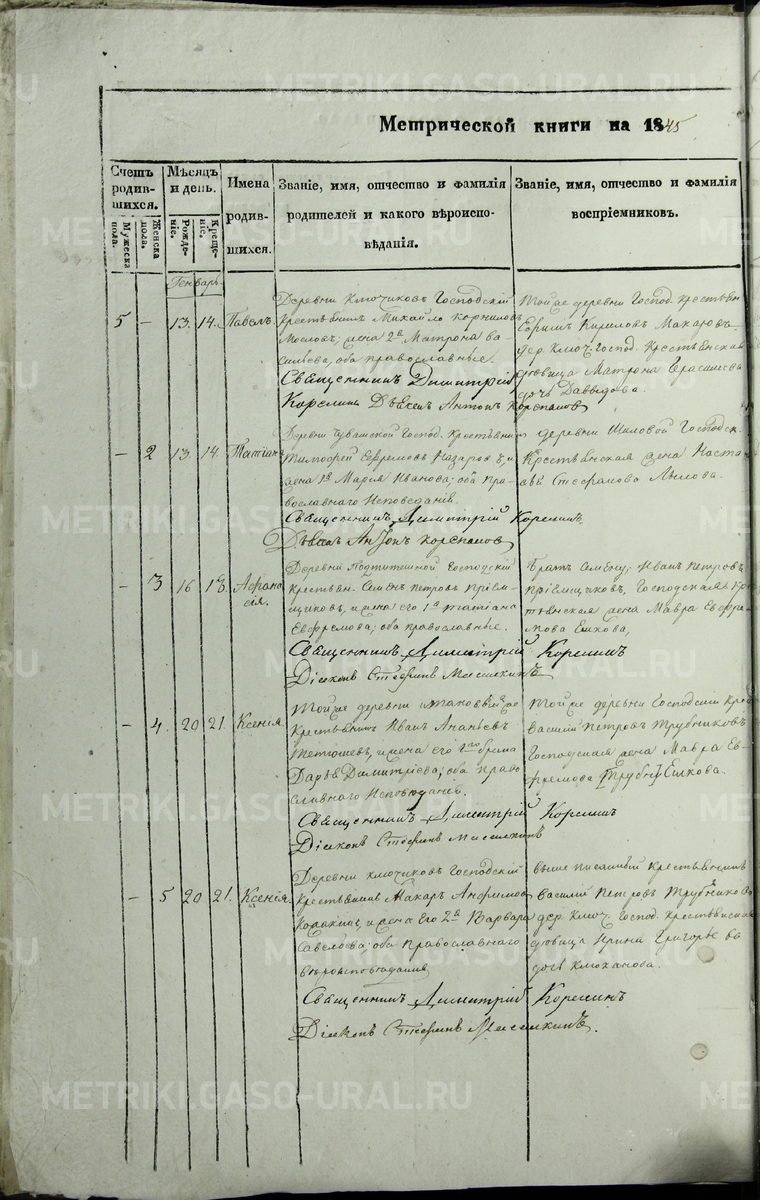 Метрической книги на 1845
Счетъ родившихся.
Мѣсяцъ и день.
Имена родившихся.
Званіе, имя, отчество и фамилія родителей и какого вѣроисповѣданія.
Званіе, имя, отчество и фамилія воспріемниковъ.
Мужеска пола.
Женска пола.
Рожденіе.
Крещеніе.
Генварь
5 – 13. 14. Павелъ
Деревни Ключиковъ Господскій
Крестьянинъ Михайло Корниловъ
жена 2ª Матрона Ва
сильева, оба православные.
Священникъ Димитрій
Корелинъ Дьячекъ Антонъ Корепановъ
Тойже деревни Господ. крестьян
Кириловъ Макаровъ
дер. Ключ. Господ. Крестьянская
вдовица Матрона Герасимова
дочь Давыдова.
– 2 13 14 Татіана
Деревни Чувашской Господ. Крестьянинъ
Тимофей Ефремовъ Назаровъ, и
жена 1ª Марья Иванова; оба Пра
вославнаго Исповеданія.
Священникъ Димитрій Корелинъ
Дьячекъ Антонъ Корепановъ
деревни Шиловой Господск.
Крестьянская жена Наста
сья Стефанова
– 3 16 18. Афана
сія.
Деревни Господскій
Крестьян. Семенъ Петровъ Пріем
щиковъ, и жена его 1ª Татіана
Евфремова; оба православные.
Священникъ Димитрій Корелинъ
Діаконъ Стефанъ
Братъ Семену; Иванъ Петровъ
Пріемщиковъ, Господская Кре
стьянская жена Мавра Евфре
мова Ешкова,
– 4. 20 21. Ксенія.
Тойже деревни
Крестьянинъ Иванъ Ананьевъ
Тетюшевъ, и жена его 1го брака
Дарья Димитріева; оба Право
славнаго Исповѣданія.
Священникъ Димитрій Корелинъ
Діаконъ Стефанъ
Тойже деревни Господскій Крес
Василій Петровъ Трубниковъ
Господская жена Мавра Ев
фремова Ешкова.
– 5 20 21. Ксенія.
Деревни Ключиковъ Господскій
Крестьянинъ Макаръ Анфимовъ
и жена Его 2ª Варвара
Савельева; оба Православнаго
вѣроисповѣданія
Священникъ Димитрій Корелинъ
Діаконъ Стефанъ
выше писанный Крестьянинъ
Василій Петровъ Трубниковъ
дер. Ключ. Господ. Крестьянская
вдовица Ирина Григорье ва
дочь Клюханова.
METRIKI.GASO-URAL.RU